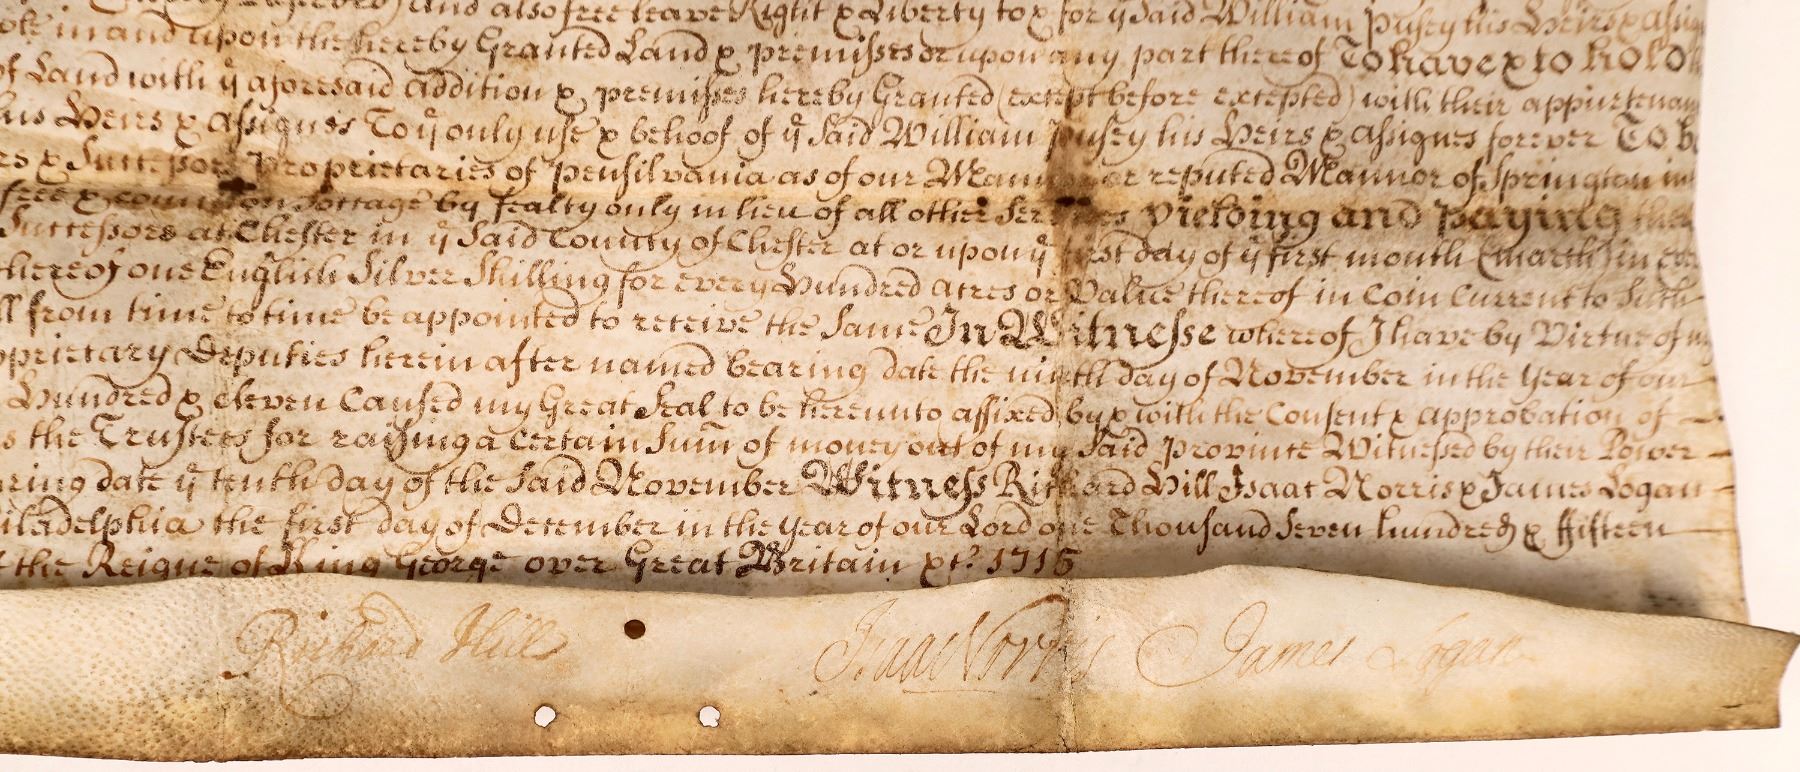 and also free leave Right & Liberty to & for yͤ Said William Pusey his Heirs & assig
in and upon the hereby Granted Land & premisses or upon any part thereof To have & to hold
of Land with yͤ aforesaid addition & premisses hereby Granted (except before excepted) with their appurtenan
his Heirs & assignes To yͤ only use & behoof of yͤ Said William Pusey his Heirs & assignes forever To be
rs & Successors Proprietaries of Pensilvania as of our Mannor or reputed Mannor of Springton in
free & common Soccage by fealty only in lieu of all other Services Yielding and paying
Successors at Chester in yͤ Said County of Chester at or upon yͤ first day of yͤ first month (March) in
thereof one English Silver Shilling for every Hundred acres or Value thereof in Coin Current to Such
ll from time to time be appointed to receive the Same In Witnesse whereof I have by Virtue of my
oprietary Deputies herein after named bearing date the ninth day of November in the Year of our
Hundred & eleven Caused my Great Seal to be hereunto affixed by & with the Consent & approbation of
s the Trustees for raising a Certain Sum̃ of money out of my Said Province Witnessed by their Power
aring date yͤ tenth day of the Said November Witness Richard Hill Isaac Norris & James Logan
iladelphia the first day of December in the Year of our Lord one Thousand Seven hundred & ffifteen
the Reigne of King George over Great Britain &c. 1715
Richard Hill Isaac Norris James Logan